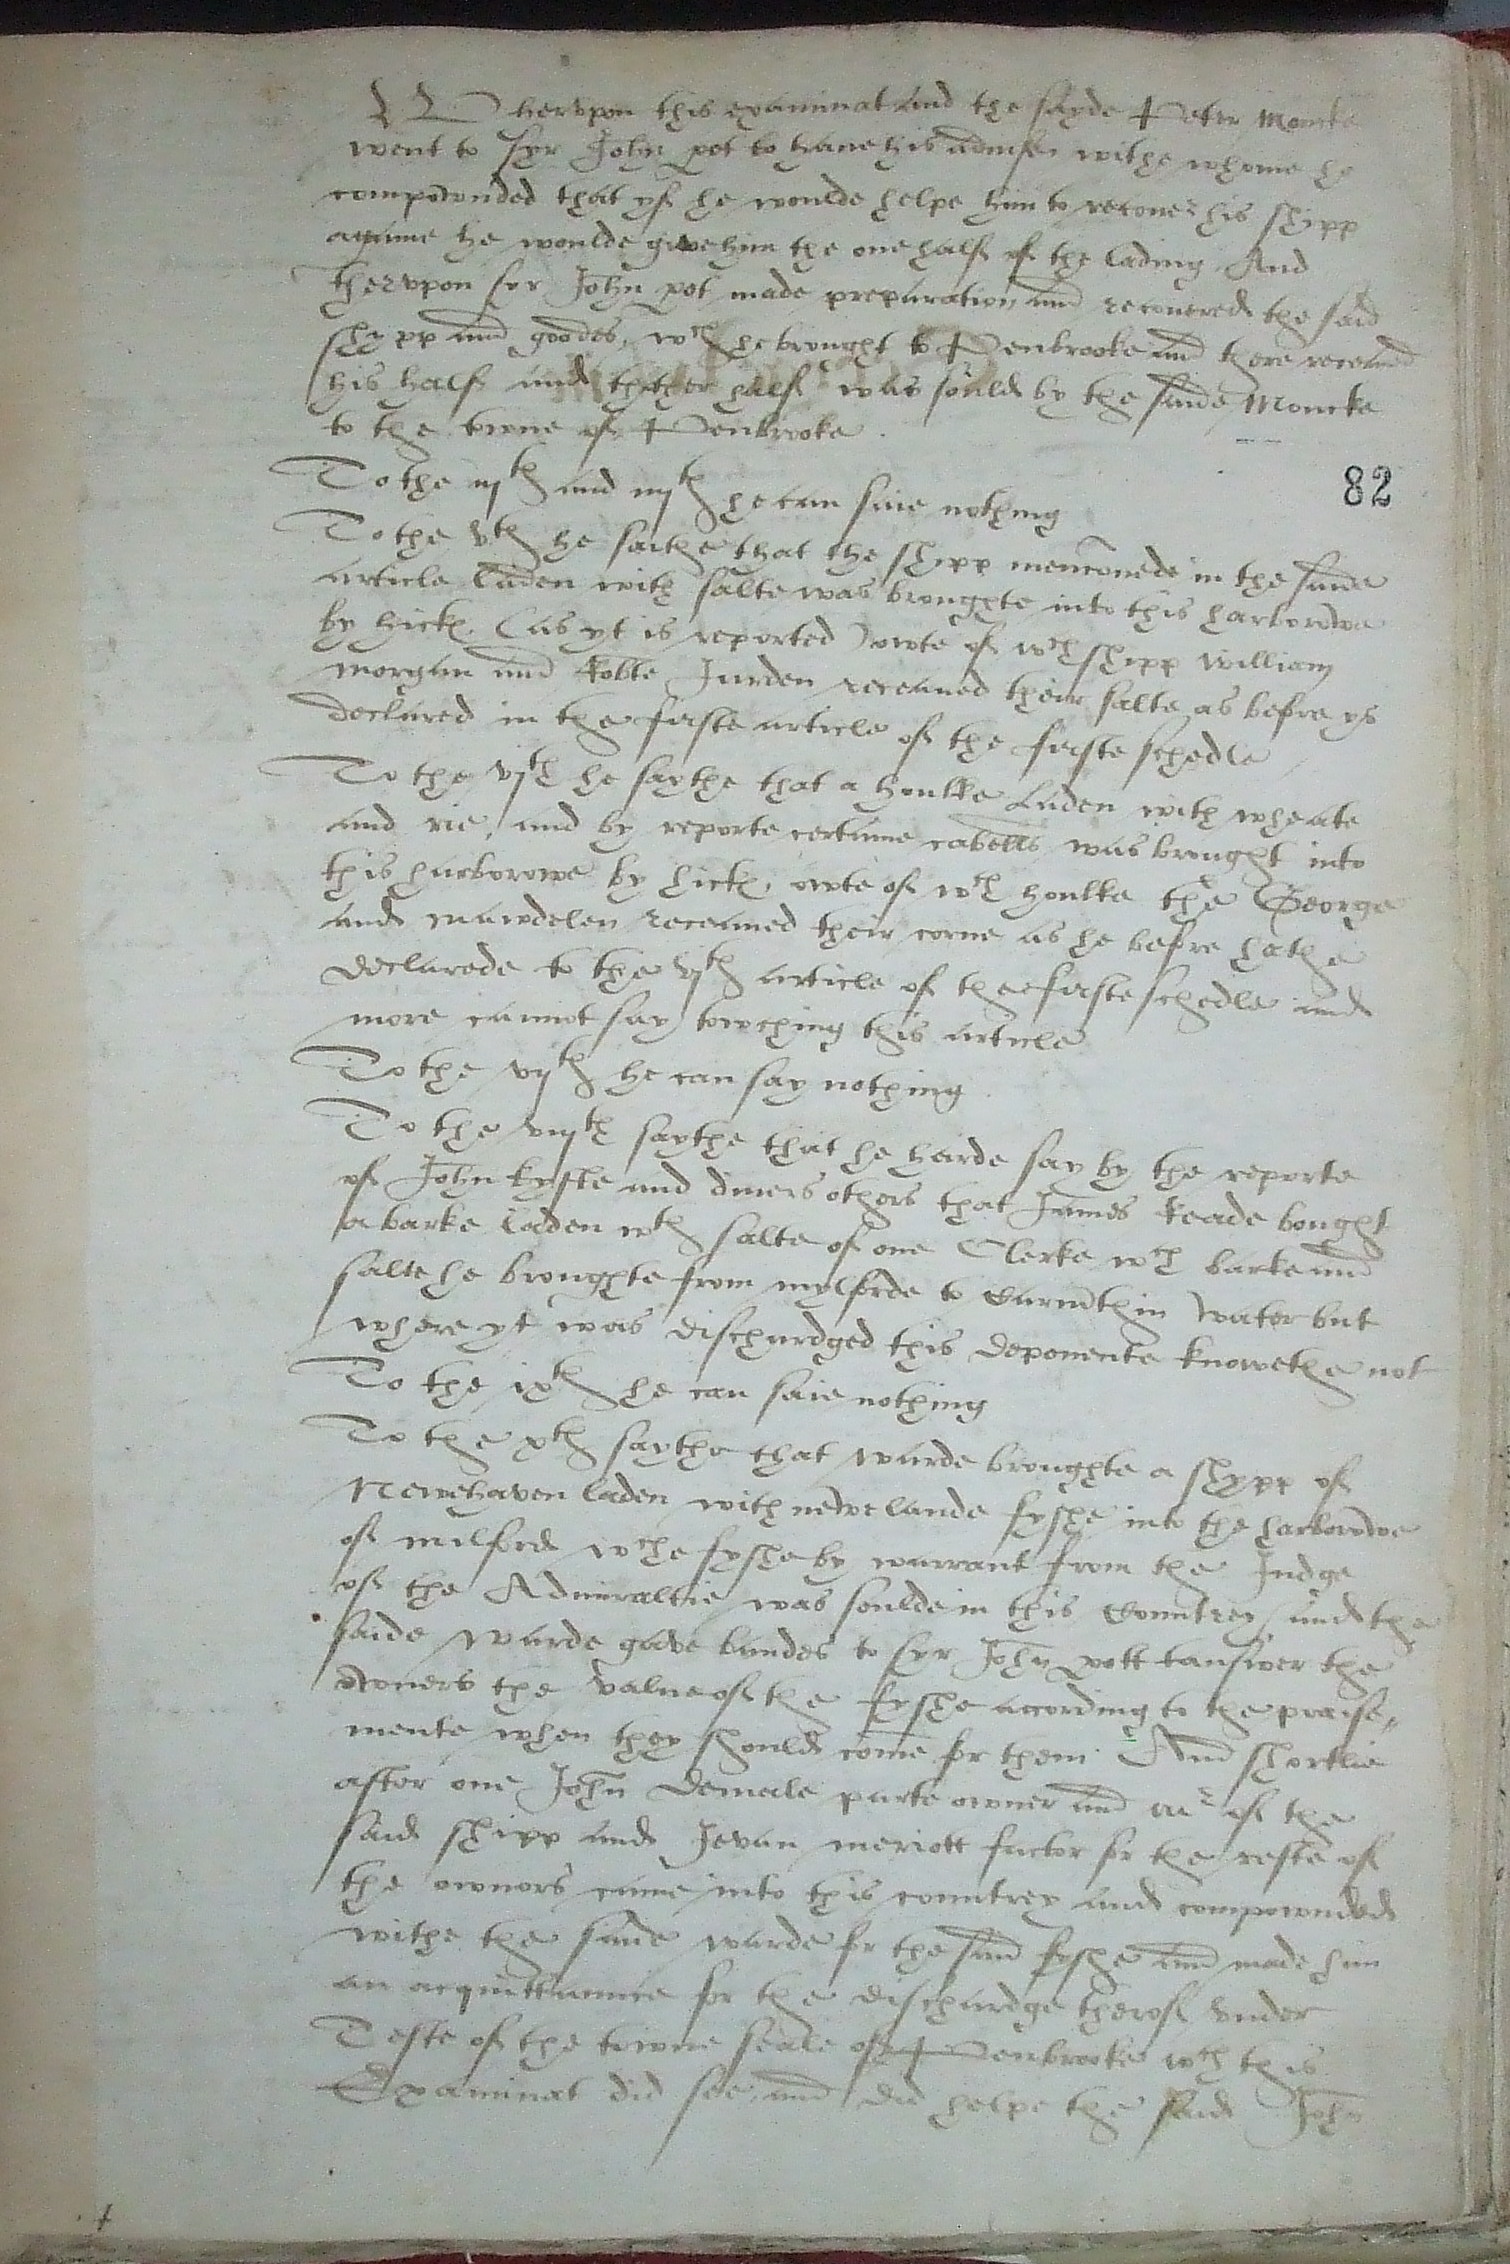 Whervpon this examinat and the sayde Peter Moncke
went to Syr John pot to haue his advise withe whome he
compownded that yf he woulde helpe him to recouer his shipp
agaime he woulde give him the one half of the lading And
thervpon syr John pot made preparation and recouered the said
shypp and goodes, wch he brought to Penbrooke and there receaued
his half and thother half was soulde by the saide Moncke
to the towne of Penbrooke.
To the iijth and iiijth he can saie nothing
82
To the vth he saithe that the shipp mencionede in the saide
article laden with salte was broughte into this harborowe
by hick. (as yt is reported) owte of wch shipp william
morgan and Robte Jurden receaued their salte as before ys
declared in the firste article of the firste schedle
To the vjth he saythe that a houlke laden with wheate
and rie, and by reporte certaine cabells was brought into
this harborowe by hick. owte of wch houlke the George
and mawdelen receaued their corne as he before hathe
declarede to the vjth article of the firste schedle and
more cannot say towching this article
To the vijth he can say nothing
To the viijth saythe that he harde say by the reporte
of John kyste and diuers others that James Reade bought
a barke laden wth salte of one Clerke wch barke and
salte he broughte from mylforde to Carmthin water but
where yt was dischardged this deponente knowethe not
To the ixth he can saie nothing
To the xth saythe that warde broughte a shypp of
Newehaven laden with newe lande fyshe into the harborowe
of milford wche fyshe by warrant from the Judge
of the Admiraltie was soulde in this Countrey, and the
saide warde gave bandes to syr John pott tanswer the
owners the value of the fyshe according to the praise„
mente when they should come for them. And shortlie
after one John demale parte owner and mr of the
said shipp and Jevan meriott factor for the reste of
the owners came into this countrey and compownded
withe the saide warde for the said fyshe and made him
an acquittaunce for the dischardge therof vnder
Teste of the towne seale of Penbrooke wch this
Examinat did see, and did helpe the said John